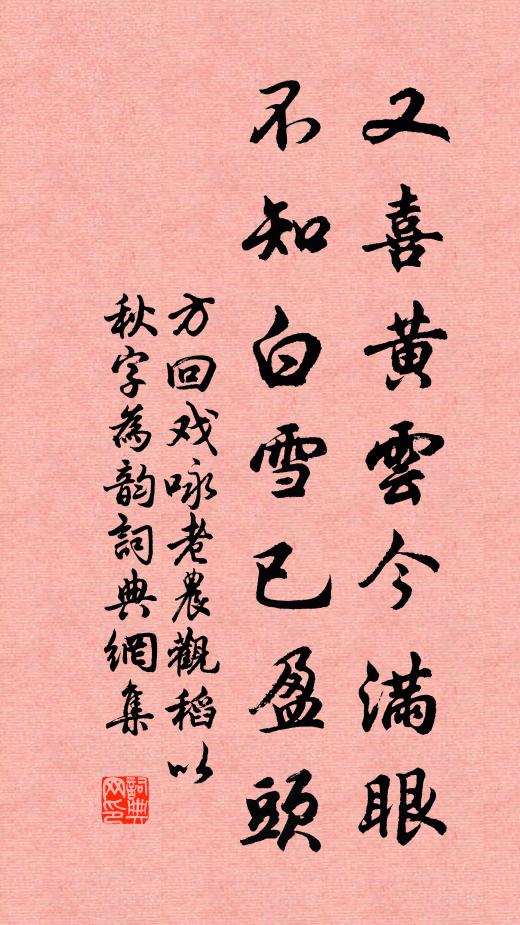 又喜黄雲今满眼
不知白雪已盈頭
方回戏咏老農觀稻以
秋字為韵詞典網集
詞典网印